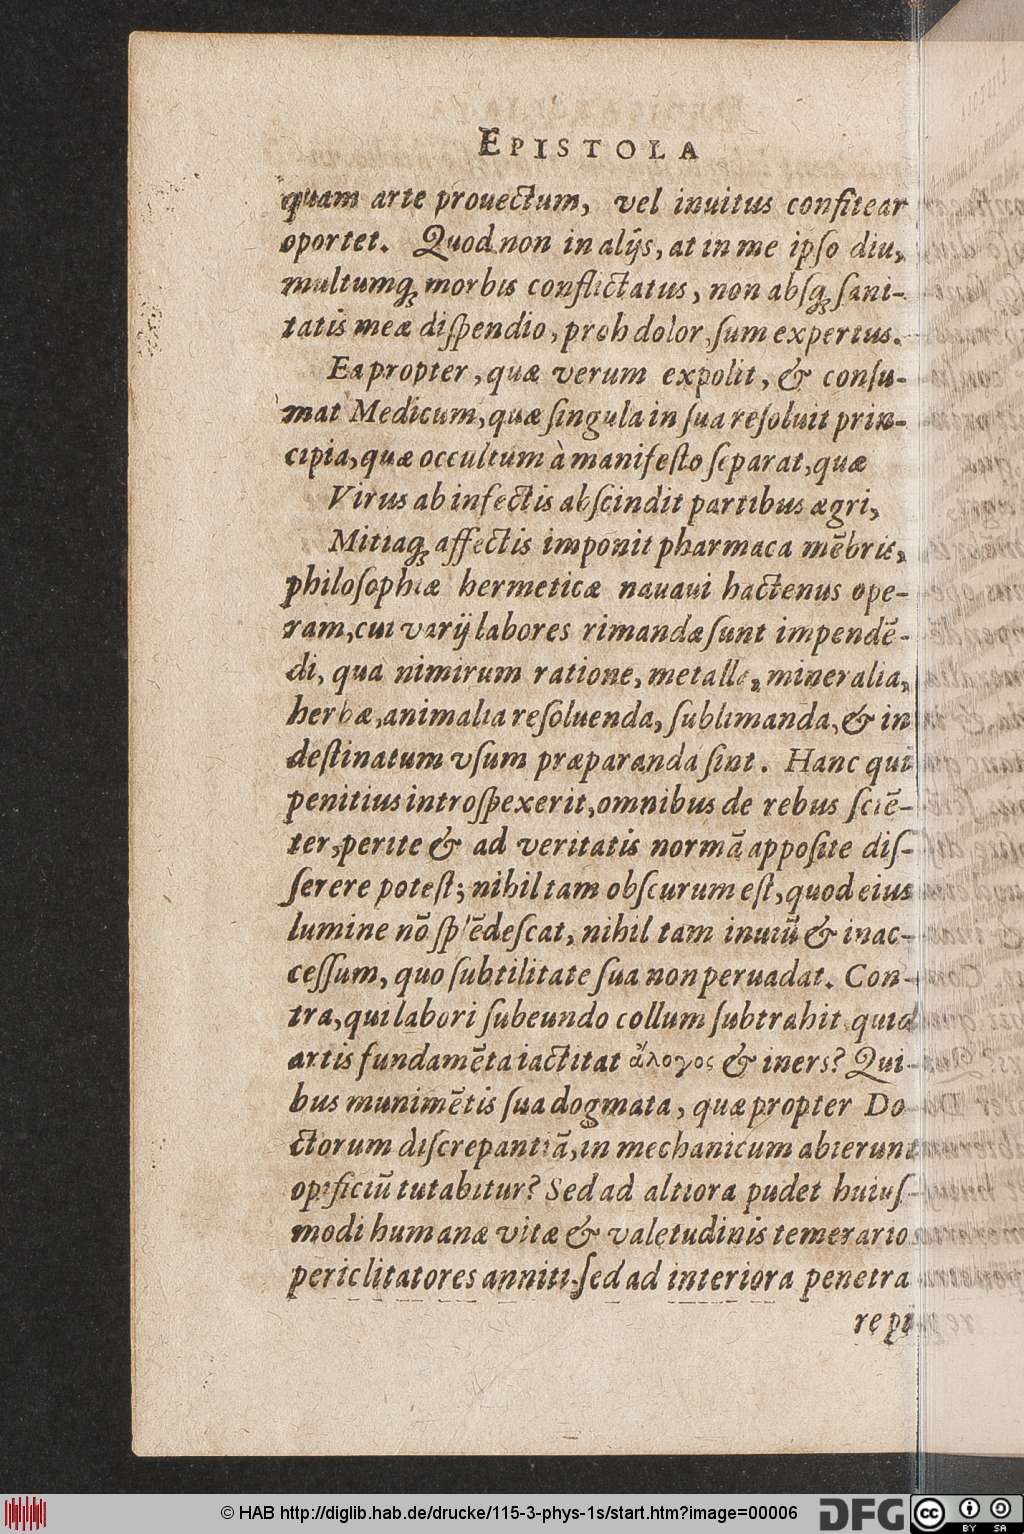 EPISTOLA
quam arte prouectum, vel inuitus confitear
oportet. Quod non in alijs, at in me ipſo diu,
multumq́ꝫ morbis conflictatus, non abſqꝫ ſani-
tatis meæ diſpendio, proh dolor, ſum expertus.
Eapropter, quæ verum expolit, & conſu-
mat Medicum, quæ ſingula in ſua reſoluit prin-
cipia, quæ occultum à manifeſto ſeparat, quæ
Virus ab infectis abſcindit partibus ægri,
Mitiaqꝫ affectis imponit pharmaca mēbris,
philoſophiæ hermeticæ nauaui hactenus ope-
ram, cui varij labores rimandæ ſunt impendē-
di, qua nimirum ratione, metalla, mineralia,
herbæ, animalia reſoluenda, ſublimanda, & in
deſtinatum vſum præparanda ſint. Hanc qui
penitius introſpexerit, omnibus de rebus ſciē-
ter, perite & ad veritatis normā appoſite diſ-
ſerere poteſt; nihil tam obſcurum eſt, quod eius
lumine nō ſplēdeſcat, nihil tam inuiū & inac-
ceſſum, quo ſubtilitate ſua non peruadat. Con-
tra, qui labori ſubeundo collum ſubtrahit quid
artis fundamēta iactitat ἄλογος & iners? Qui-
bus munimētis ſua dogmata, quæ propter Do-
ctorum diſcrepantiā, in mechanicum abierunt
opificiū tutabitur? Sed ad altiora pudet huiuſ-
modi humanæ vitæ & valetudinis temerarios
periclitatores anniti, ſed ad interiora penetra
re pi
© HAB http://diglib.hab.de/drucke/115-3-phys-1s/start.htm?image=00006
DFG
cc
BY SA